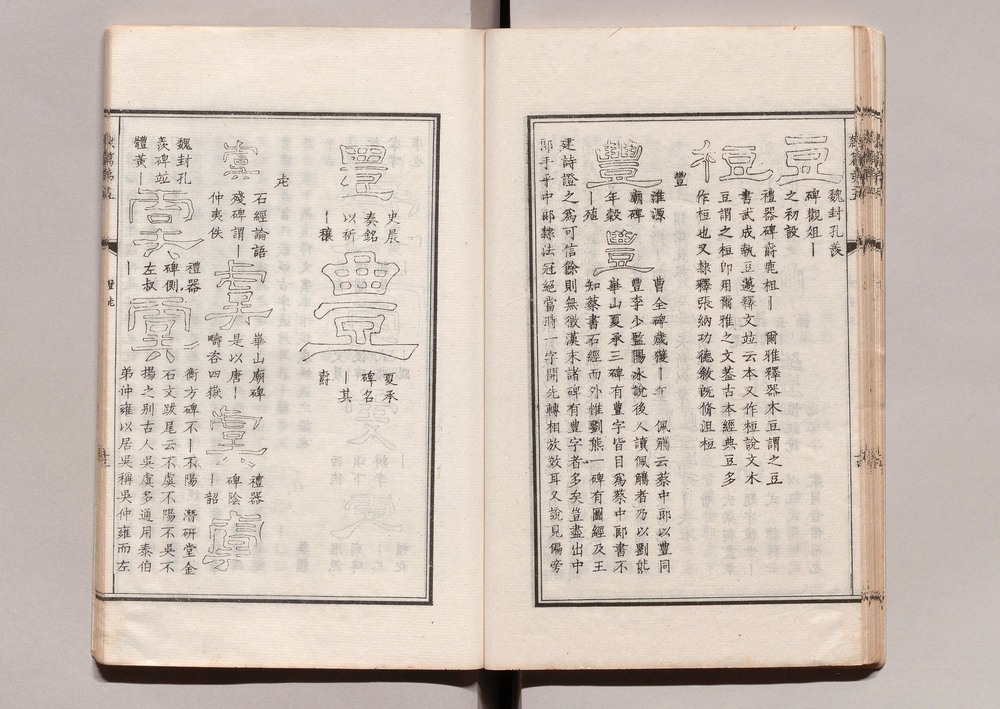 豆
魏封孔羨
碑觀俎｜
之初設
梪
禮器碑爵鹿柤｜　爾雅釋器木豆謂之豆
書武成執豆籩釋文竝云本又作梪說文木
豆謂之梪卽用爾雅之文葢古本經典豆多
作梪也又隸釋張納功德敘旣脩沮梪
豐
豐
淮源
廟碑
年穀
｜殖
豐
曹全碑歲獲｜年　佩觿云蔡中郎以豐同
豐李少監陽冰說後人讀佩觿者乃以劉熊
華山夏承三碑有豐字皆目爲蔡中郎書不
知蔡書石經而外惟劉熊一碑有圖經及王
建詩證之爲可信餘則無徵漢末諸碑有豐字者多矣豈盡出中
郎手乎中郎隸法冠絕當時一字開先轉相放效耳又說見偏旁
豐
史晨
奏銘
以祈
｜穰
豐
夏承
碑名
｜其
爵
虍
虞
石經論語
殘碑謂｜
仲夷佚
虞
華山廟碑
是以唐｜
疇咨四嶽
虞
禮器
碑陰
｜韶
虞
魏封孔
羨碑竝
體黃｜
虞
禮器
碑側
左叔
｜
虞
衡方碑不｜不陽　潛硏堂金
石文跋尾云不虞不陽不吳不
揚之別古人吳虞多通用泰伯
弟仲雍以居吳稱吳仲雍而左